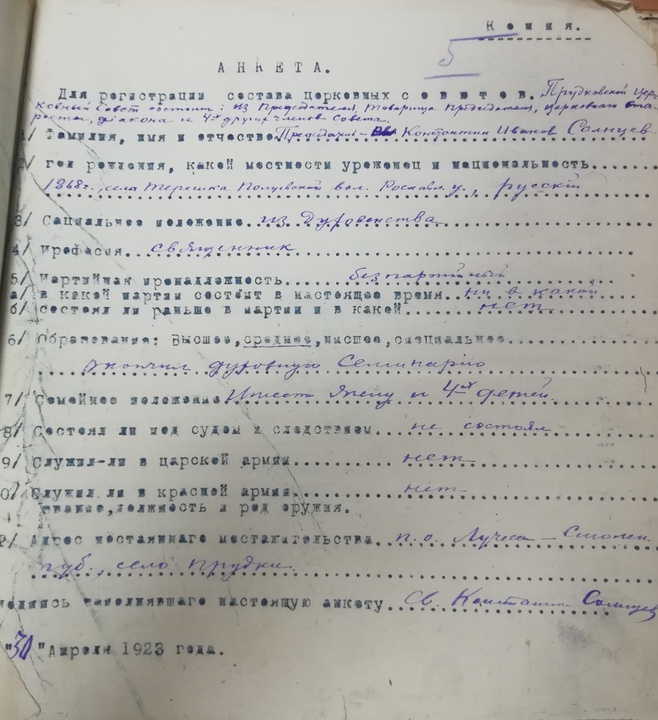 Копия.
5
АНКЕТА.
Для регистрации состава церковных советов. Прудковской цер-
ковный Совет состоит: из Председателя, Товарища Председателя, церковного ста-
росты, диакона и 4х других членов Совета.
1/ Фамилия, имя и отчество Председатель Константин Иванов Солнцев
2/ год рождения, какой местности уроженец и национальность
1868 г., села Терешка Полуевской вол. Рославл. у., русский
3/ Социальное положение из духовенства
4/ Професся священник
5/ Партийная принадлежность беспартийный
а/ в какой партии состоит в настоящее время ни в какой
б/ состоял ли раньше в партии и в какой нет
6/ Образование: Высшее, среднее, низшее, специальное
окончил духовную Семинарию
7/ Семейное положение Имеет жену и 4х детей
8/ Состоял ли под судом и следствием не состоял
9/ Служил-ли в царской армии нет
0/ Служил ли в красной армии нет
звание, должность и род оружия.
2/ Адрес постоянного местожительства п.о. Лучеса - Смолен.
губ., село Прудки
подпись заполнявшаго настоящую анкету Св. Константин Солнцев
"30" Апреля 1923 года.